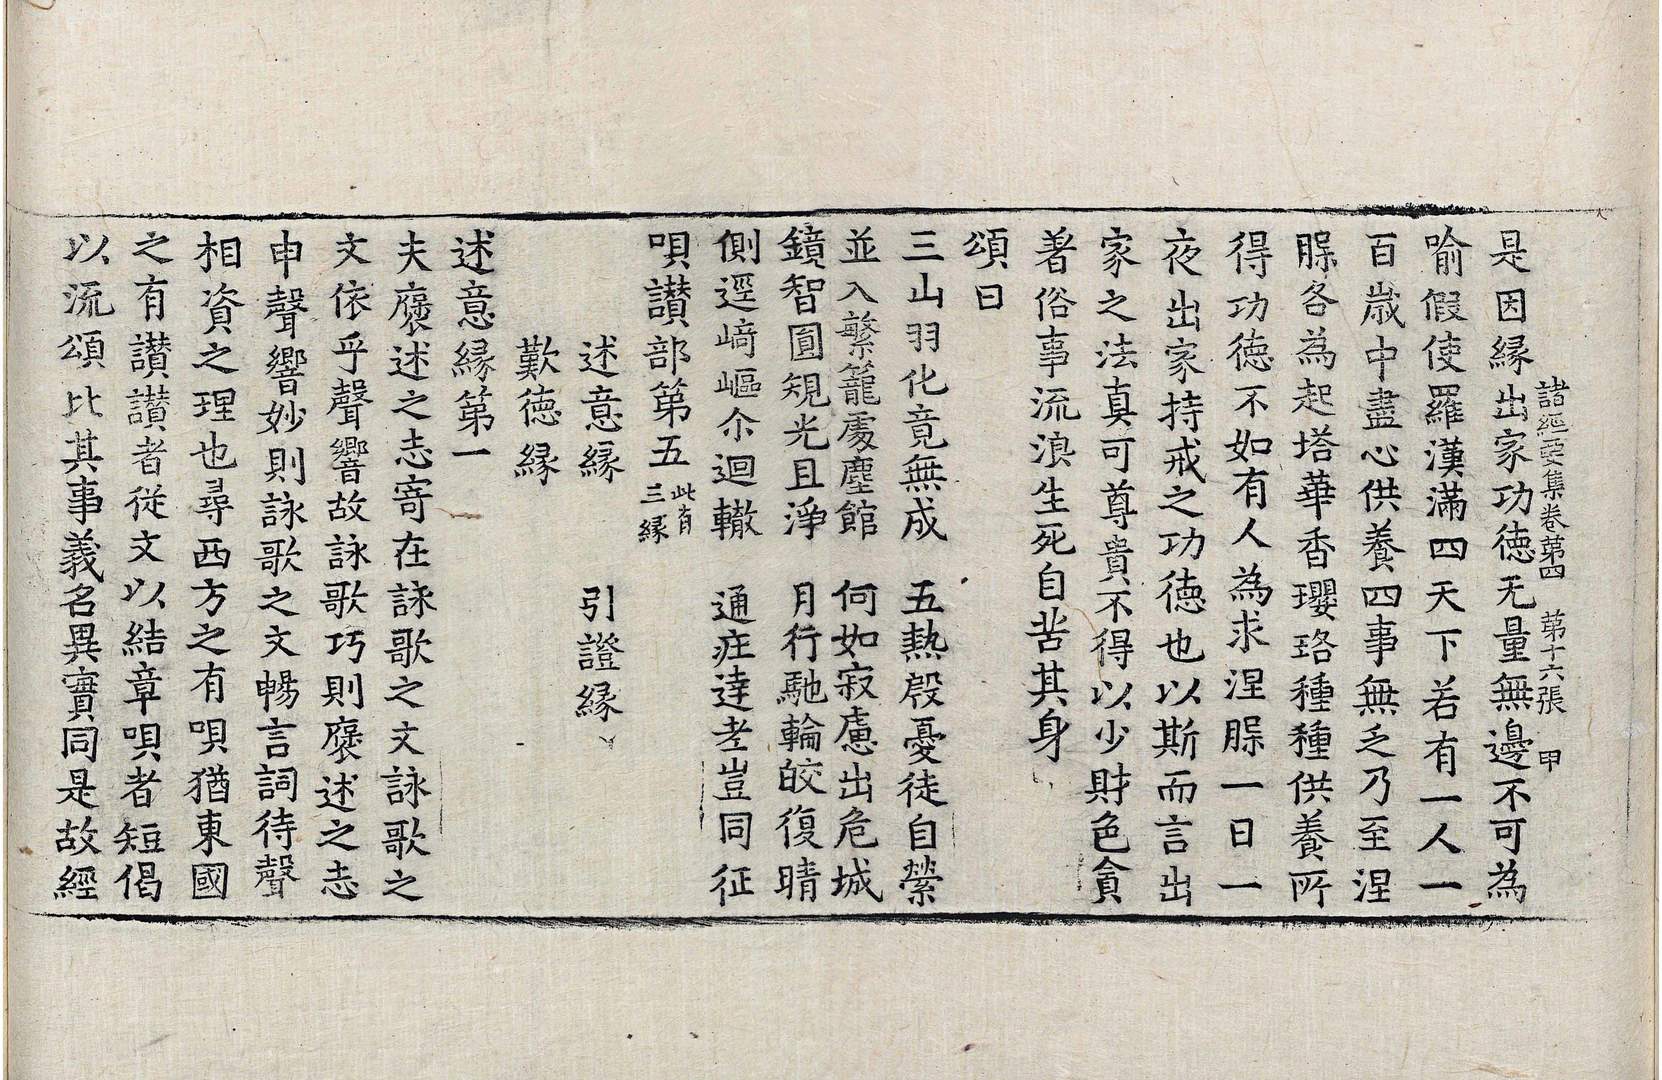 諸經要集卷第四　第十六張　甲
是因縁出家功徳无量無邊不可為
喻假使羅漢滿四天下若有一人一
百歲中盡心供養四事無乏乃至涅
脲各為起塔華香瓔珞種種供養所
得功徳不如有人為求涅脲一日一
夜出家持戒之功徳也以斯而言出
家之法真可尊貴不得以少財色貪
著俗事流浪生死自苦其身
頌曰
三山羽化竟無成　五熱殷憂徒自縈
並入繁籠處塵館　何如寂慮出危城
鏡智圓規光且淨　月行馳輪皎復晴
側逕﨑嶇尒迴轍　通莊逵老豈同征
唄讃部第五此有三縁
述意縁　引證縁
歎徳縁
述意縁第一
夫褒述之志寄在詠歌之文詠歌之
文依乎聲響故詠歌巧則褒述之志
申聲響妙則詠歌之文暢言詞待聲
相資之理也尋西方之有唄猶東國
之有讃讃者從文以結章唄者短偈
以流頌比其事義名異實同是故經